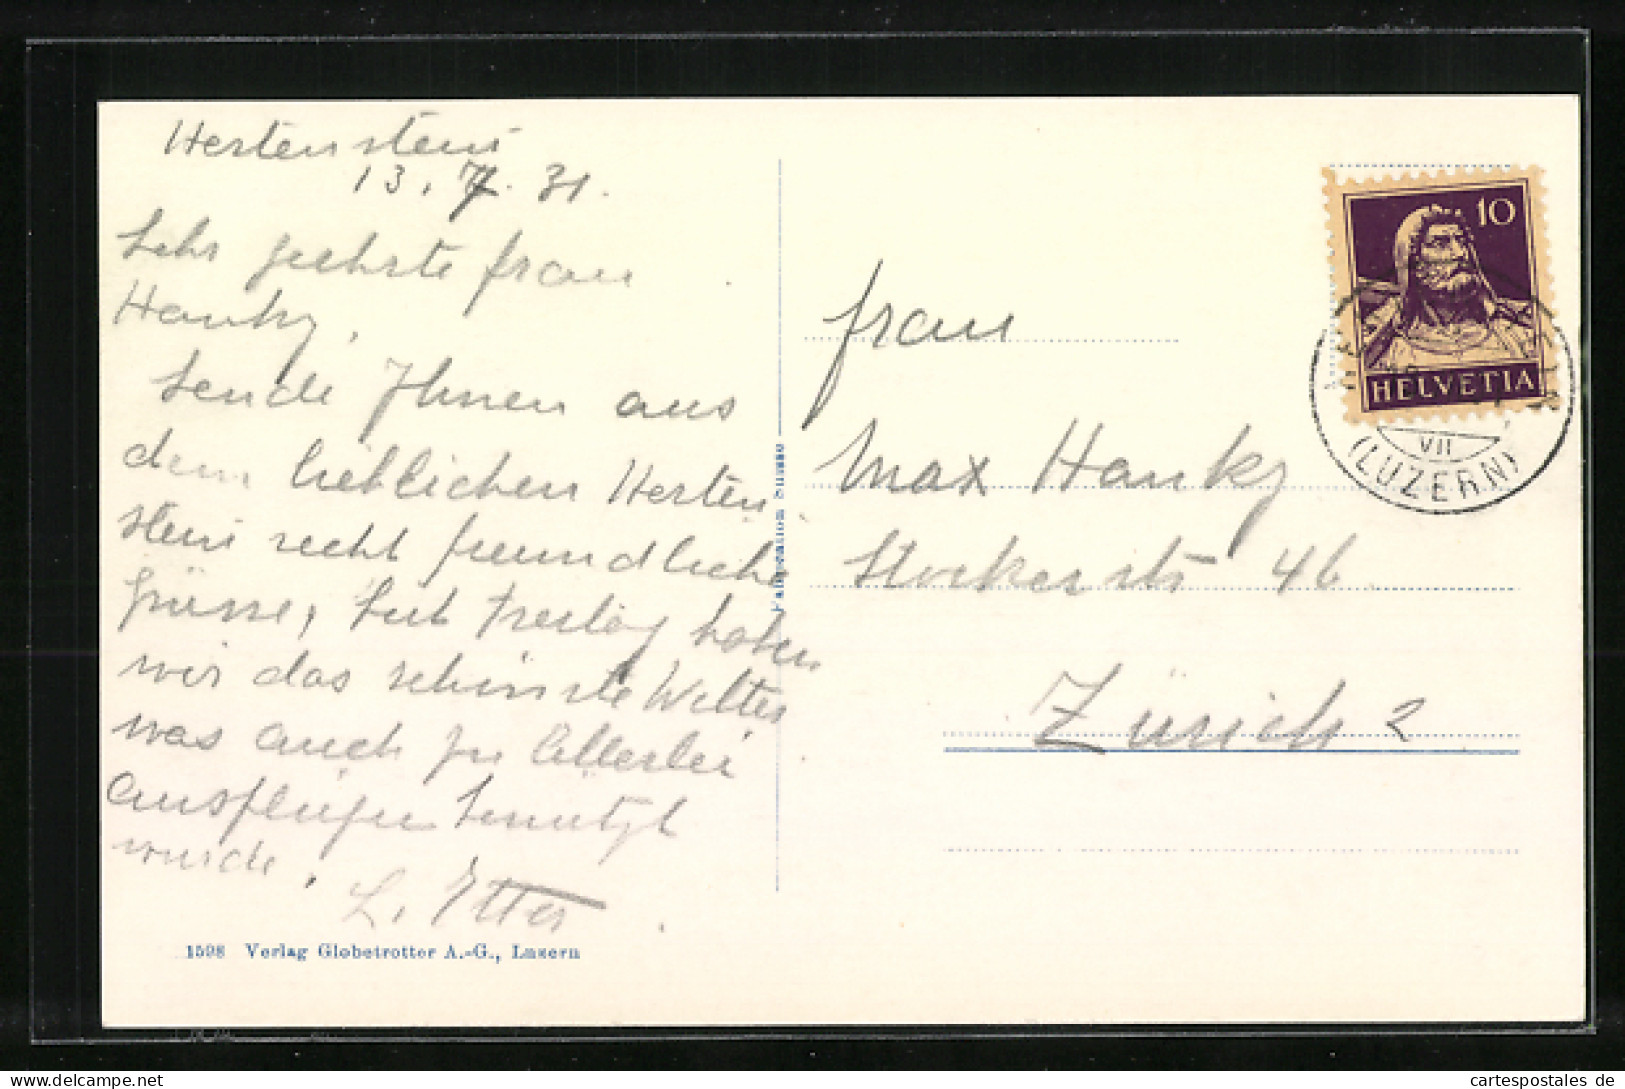 Hertenstein
13. 7. 31.
Sehr geehrte Frau
Hauky,
Sende Ihnen aus
dem lieblichen Herten
stein recht freundliche
Grüsse, Seit Freitag haben
wir das schönste Wetter
was auch zu Allerlei
Ausflügen benutzt
wurde.
L. Etter
1598 Verlag Globetrotter A.-G., Luzern
Fabrication Suisse
Frau
Max Hauky
Stockerstr 46
Zürich 2
10
HELVETIA
VII
(LUZERN)
www.cartespostales de